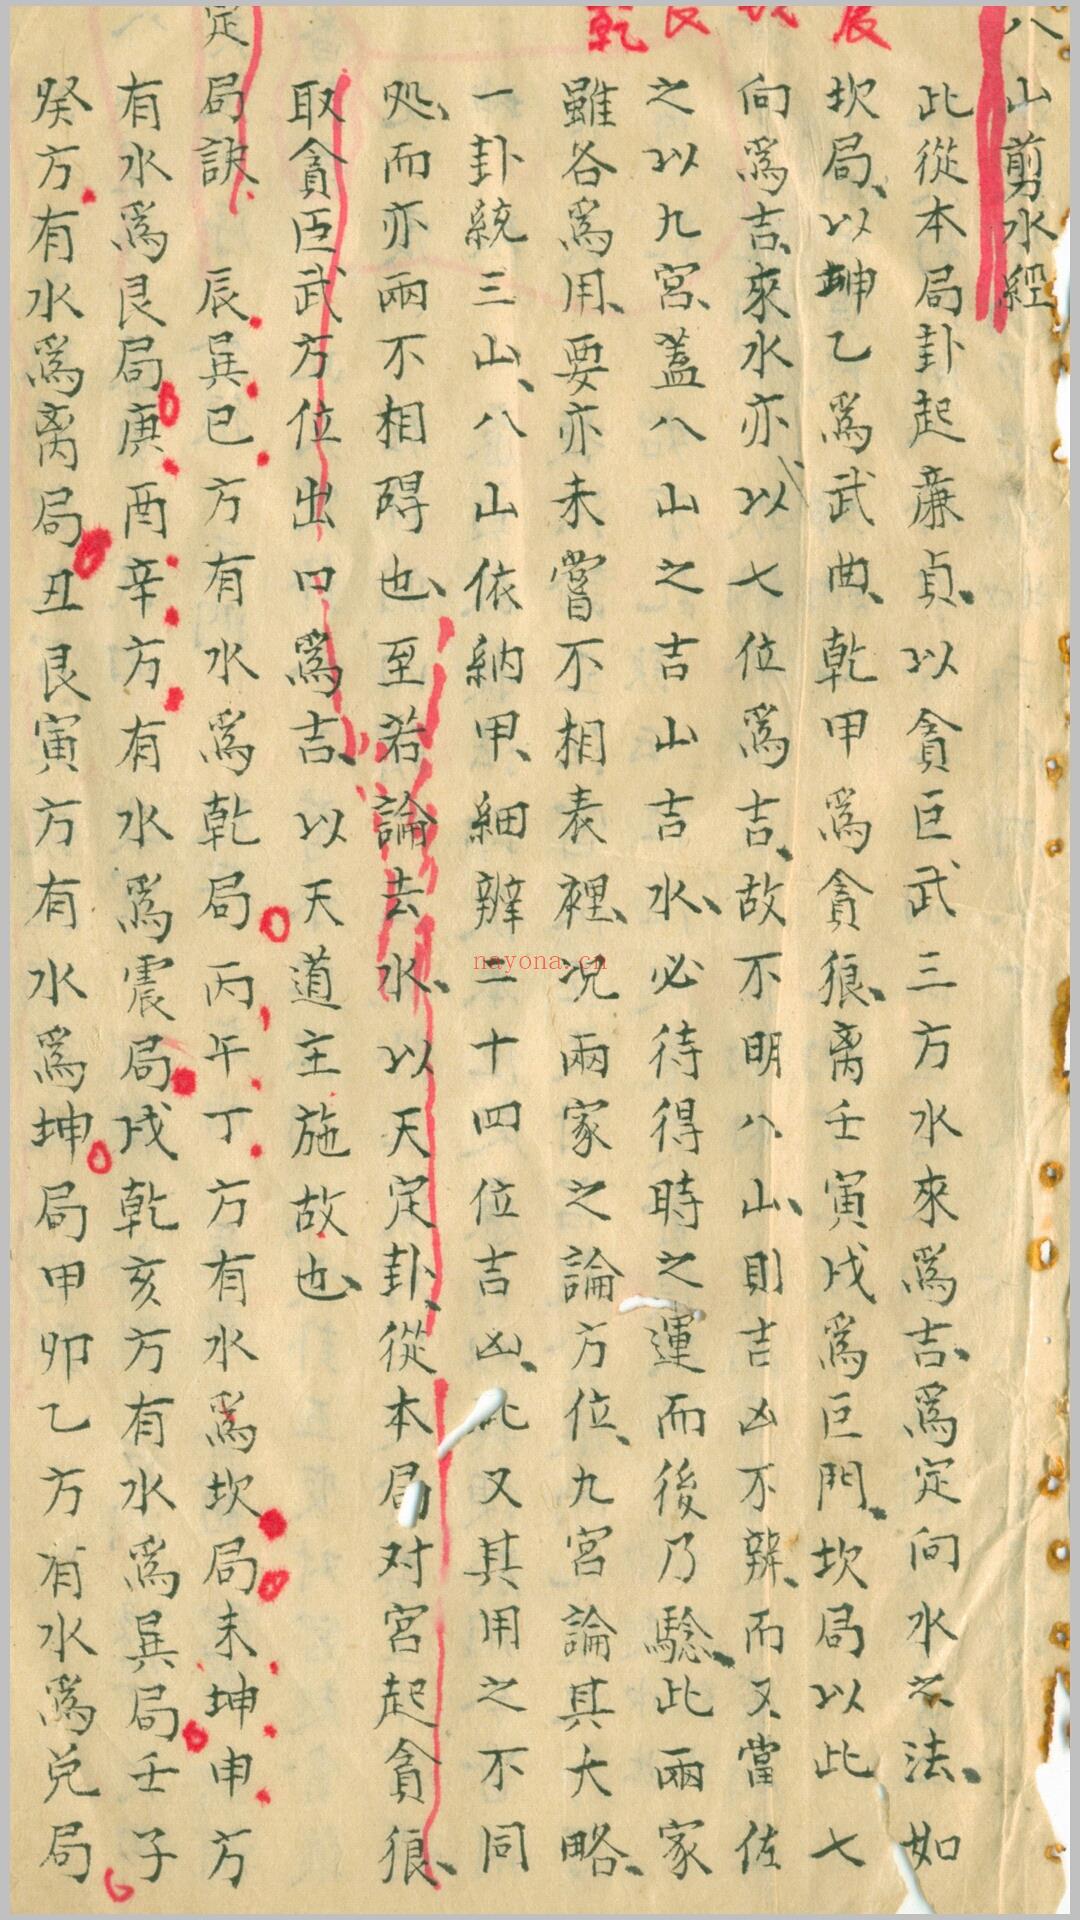 八山剪水經
此從本局卦起廉貞、以貪巨武三方水來爲吉、爲定向水之法、如
坎局、以坤乙爲武曲、乾甲爲貪狼、离壬寅戌爲巨門、坎局以此七
向爲吉、來水亦以七位爲吉、故不明八山、則吉凶不辨、而又當佐
之以九宮、蓋八山之吉山吉水、必待得時之運而後乃驗、此兩家
雖各爲用、要亦未嘗不相表裡、况兩家之論方位、九宮論其大略、
一卦統三山、八山依納甲、細辨二十四位吉凶、此又其用之不同
処、而亦兩不相碍也、至若論去水、以天定卦、從本局对宮起貪狼、
取貪巨武方位出口爲吉、以天道主施故也、
定局訣 辰巽巳方有水爲乾局 丙午丁方有水爲坎局未坤申方
有水爲艮局庚酉辛方有水爲震局戌乾亥方有水爲巽局壬子
癸方有水爲离局丑艮寅方有水爲坤局甲卯乙方有水爲兌局
震
艮
乾
nayona.cn